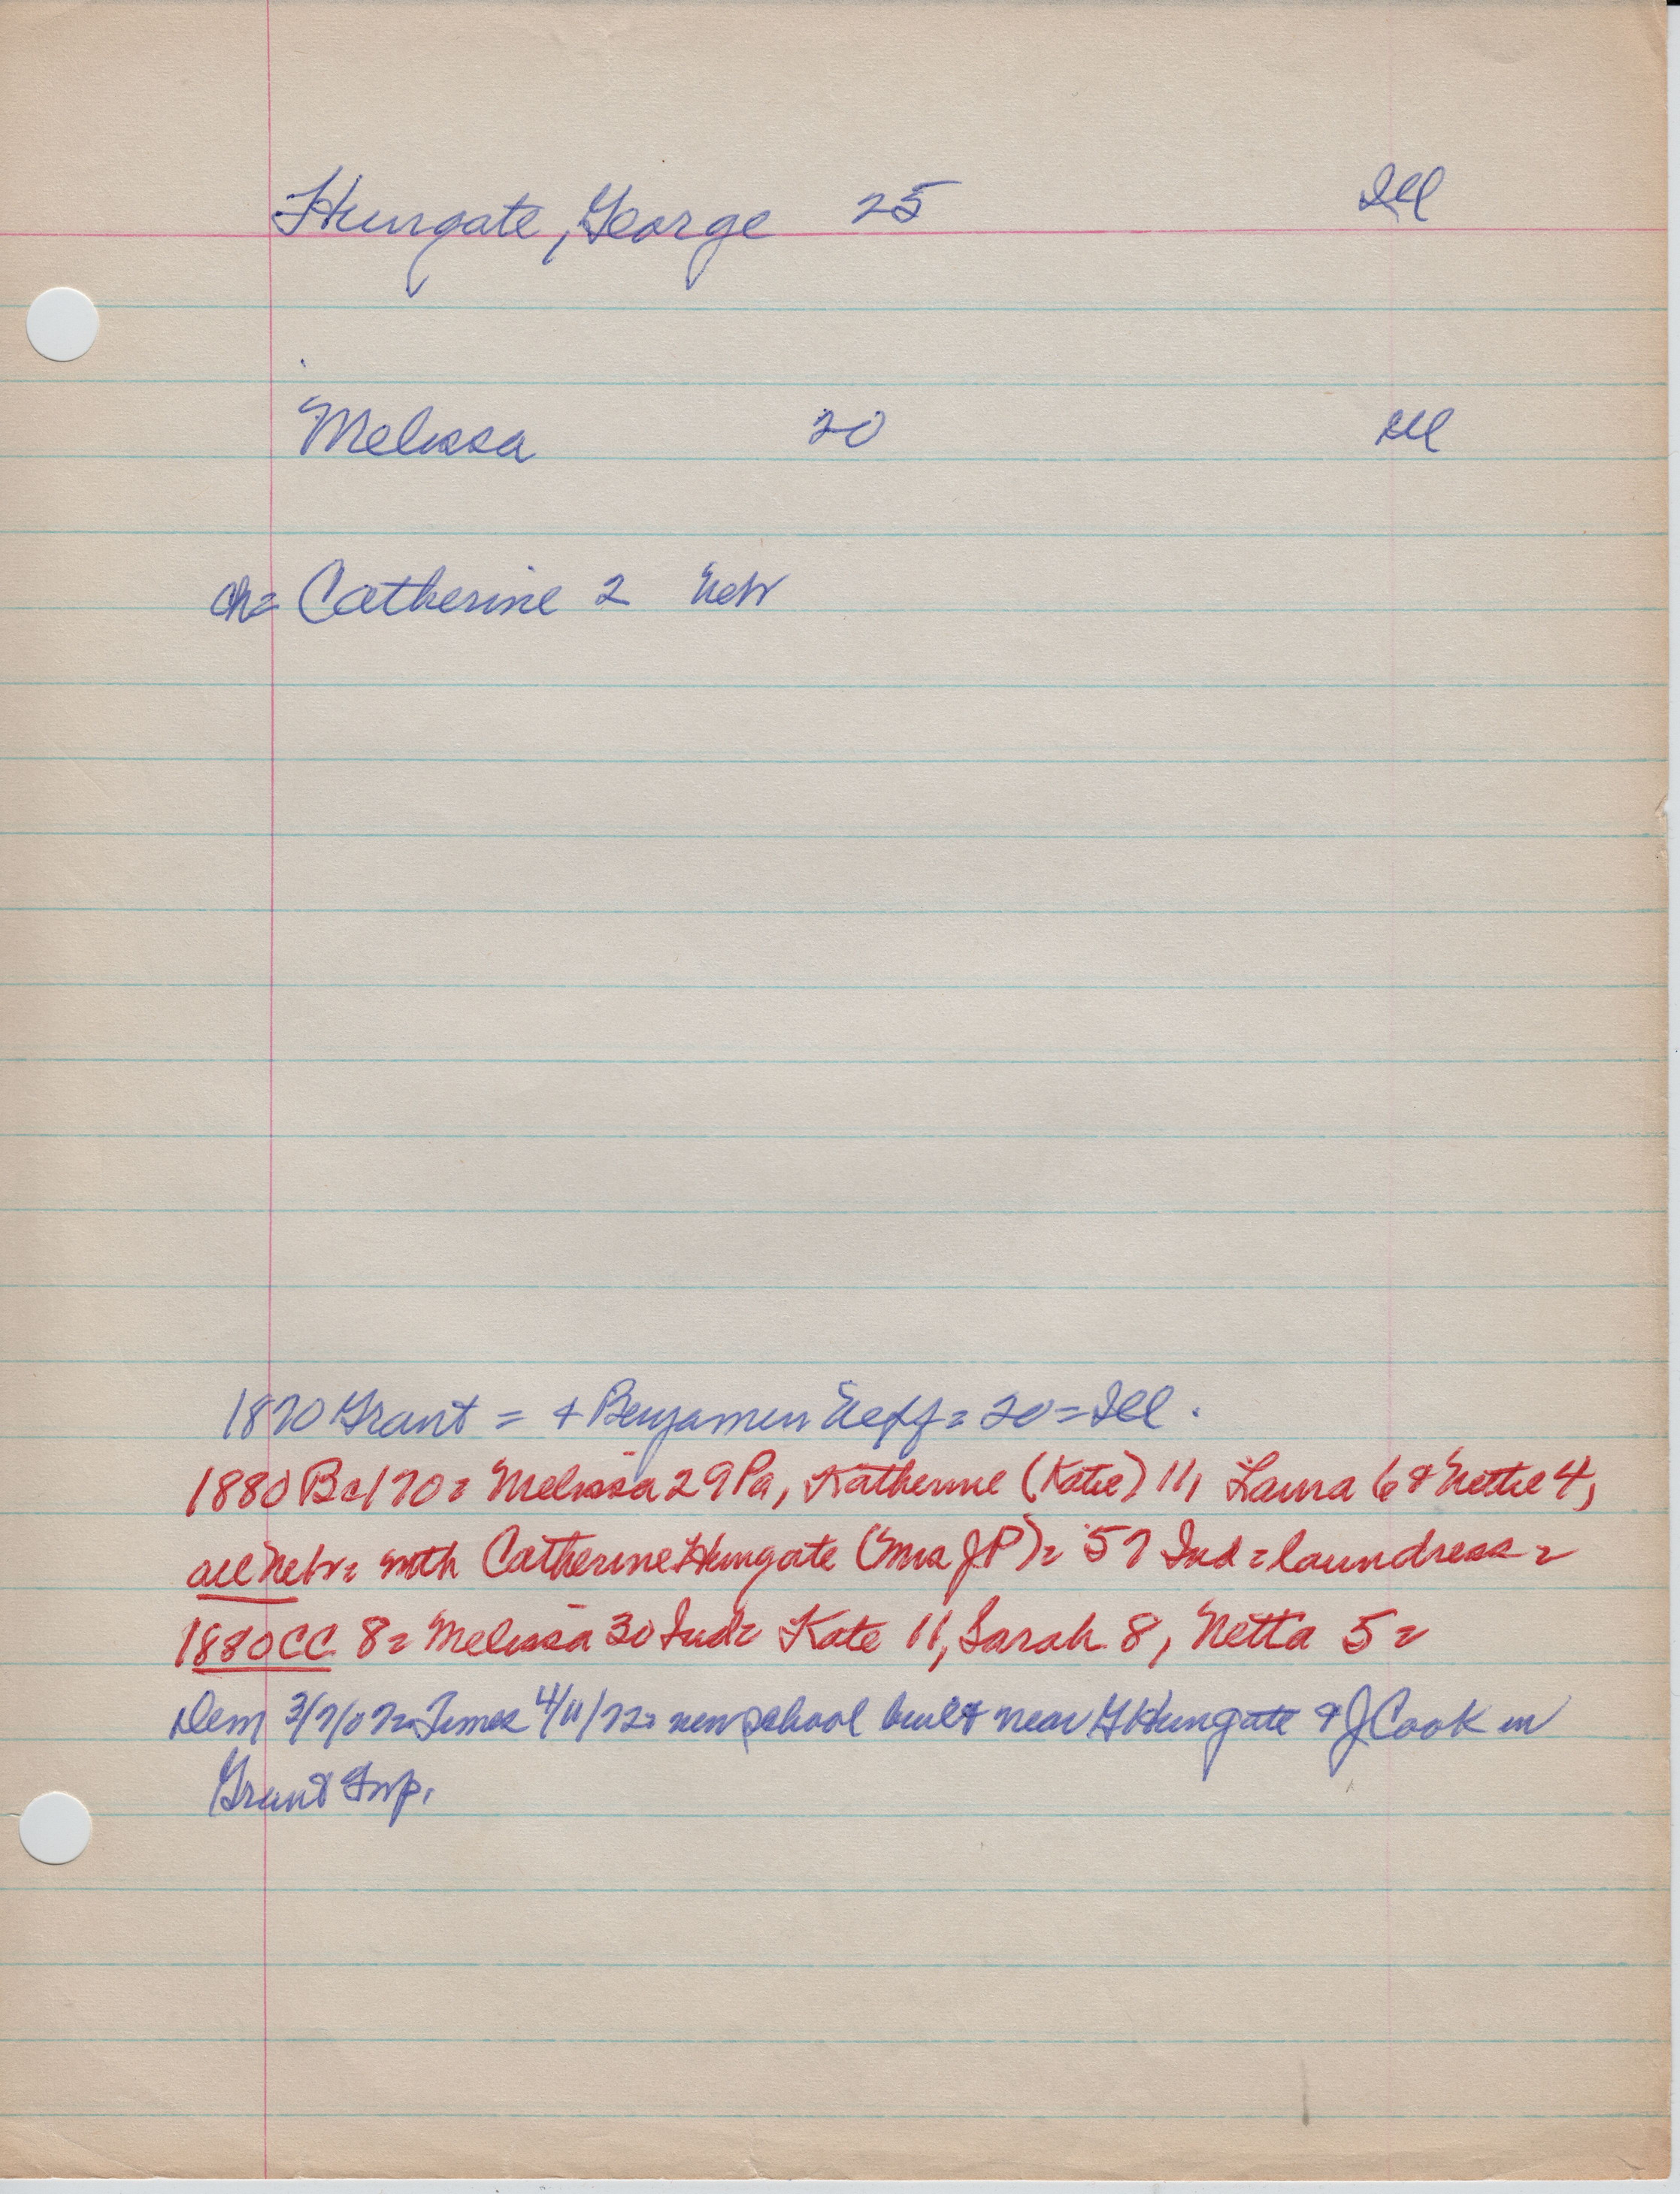 Hungate, George 25 Ill
Melissa 20 Ill
ch= Catherine 2 Neb
1870 Grant = + Benjamin Neff = 20 = Ill.
1880 Bc170= Melissa 29 Pa, Katherine (Katie) 11, Laura 6 & Nettie 4,
all Neb= with Catherine Hungate (Mrs JP)= 57 Ind = laundress =
1880 CC 8= Melissa 30 Ind= Kate 11, Sarah 8, Netta 5=
Dem Times 4/11/72= new school built near G Hungate & J Cook in
Grant Twp.